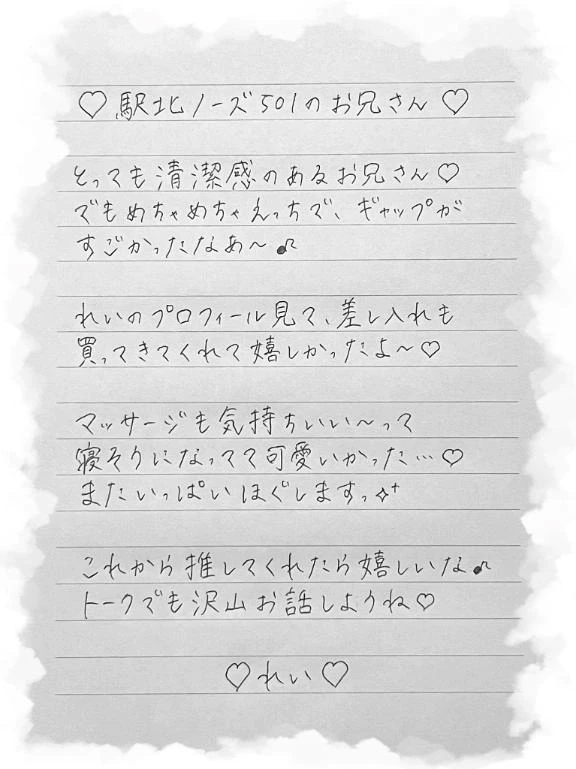 ♡駅北ノーズ501のお兄さん♡
とっても清潔感のあるお兄さん♡
でもめちゃめちゃえっちで、ギャップが
すごかったなあ〜♫
れいのプロフィール見て、差し入れも
買ってきてくれて嬉しかったよ〜♡
マッサージも気持ちいい〜って
寝そうになってて可愛いかった…♡
またいっぱいほぐしますっ✧⁺
これから推してくれたら嬉しいな♫
トークでも沢山お話しようね♡
♡れい♡